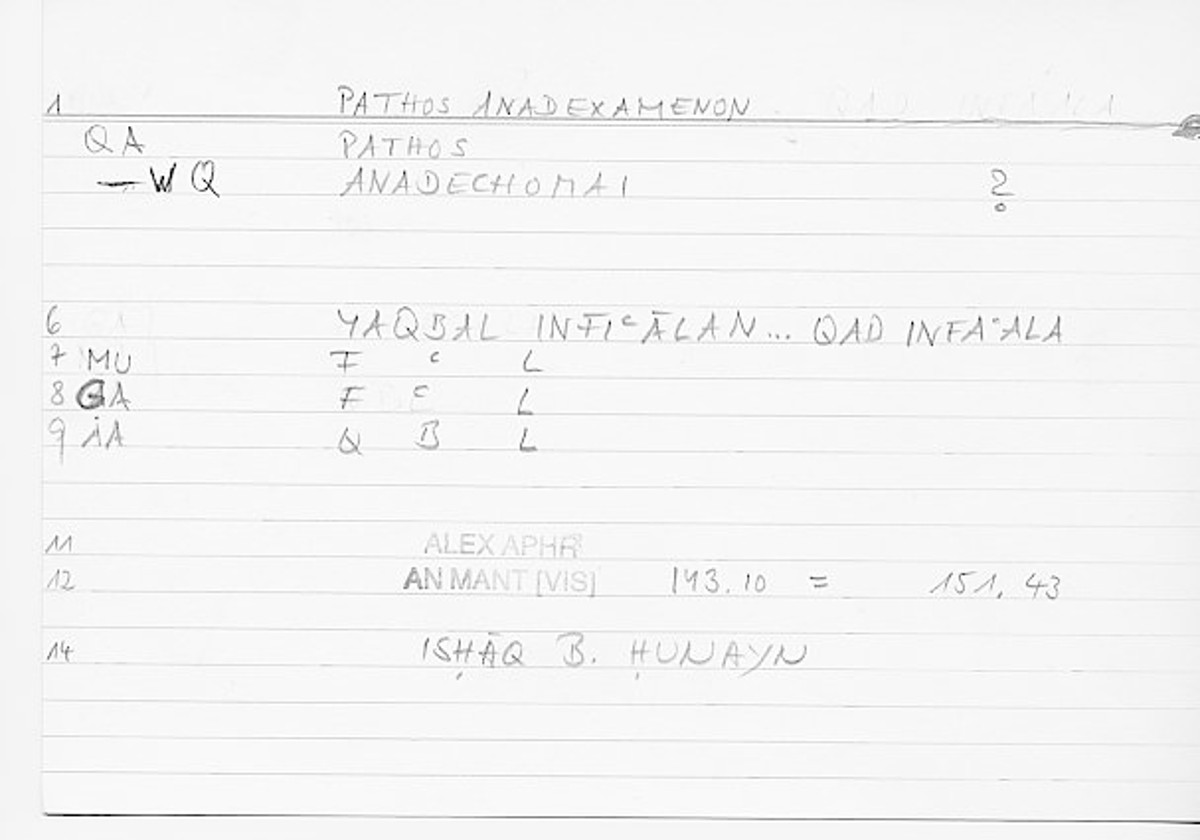 1 PATHOS ANADEXAMENON
QA PATHOS
—WQ ANADECHOMAI 2
6 YAQBAL INFIᶜĀLAN... QAD INFAᶜALA
7 MU F ᶜ L
8 GA F ᶜ L
9 AA Q B L
11 ALEX APHR
12 AN MANT [VIS] 143.10 = 151, 43
14 ISḤĀQ B. ḤUNAYN